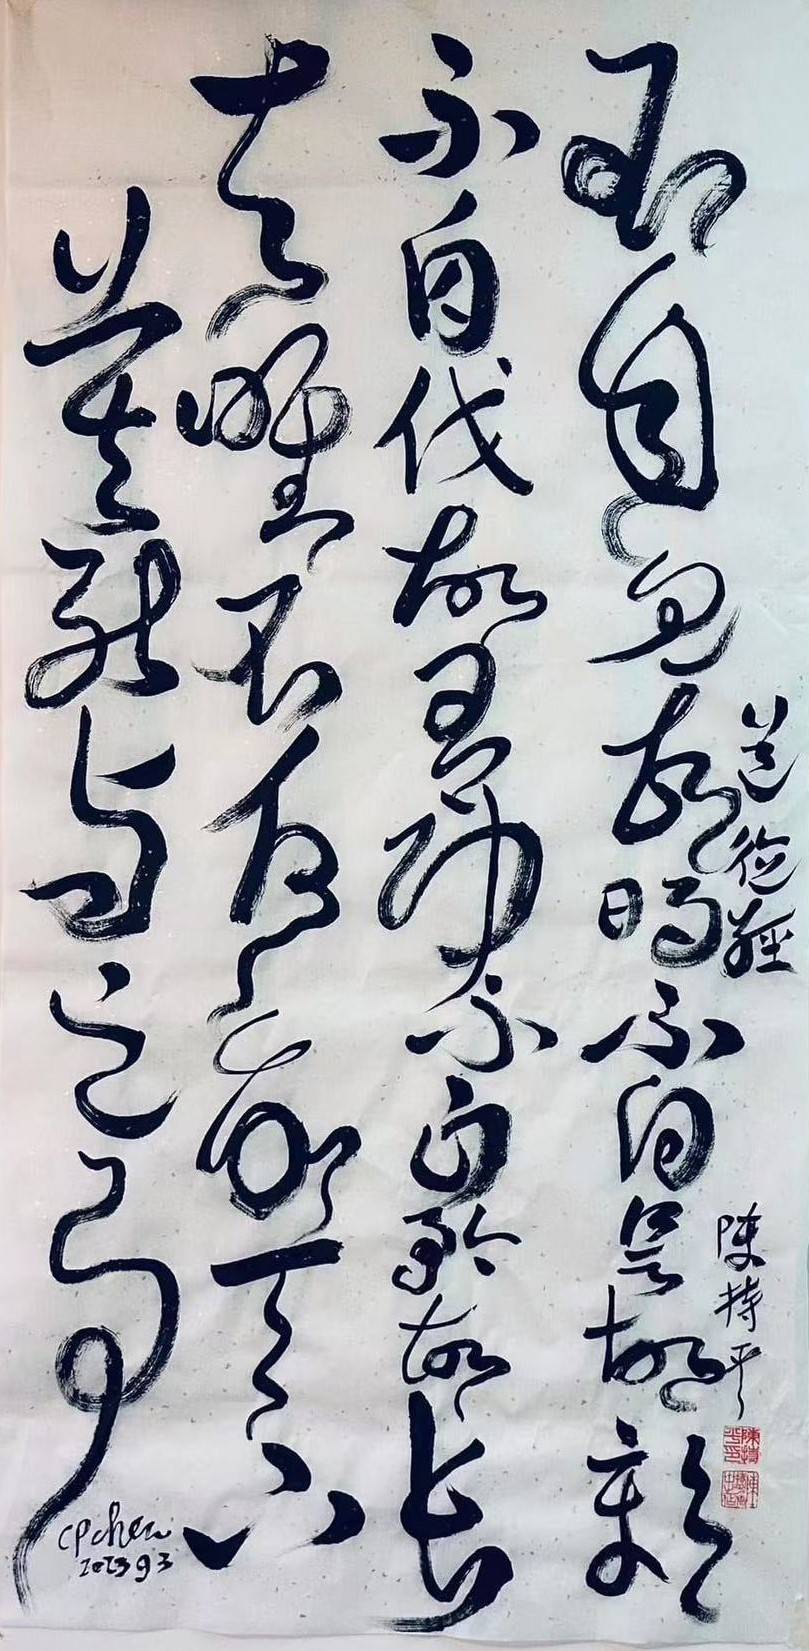 自見故明不自是故彰
不自伐故有功不自矜故長
夫唯不故天下
莫能與之爭
道德經
陳持平
CPchen
2023 9 3